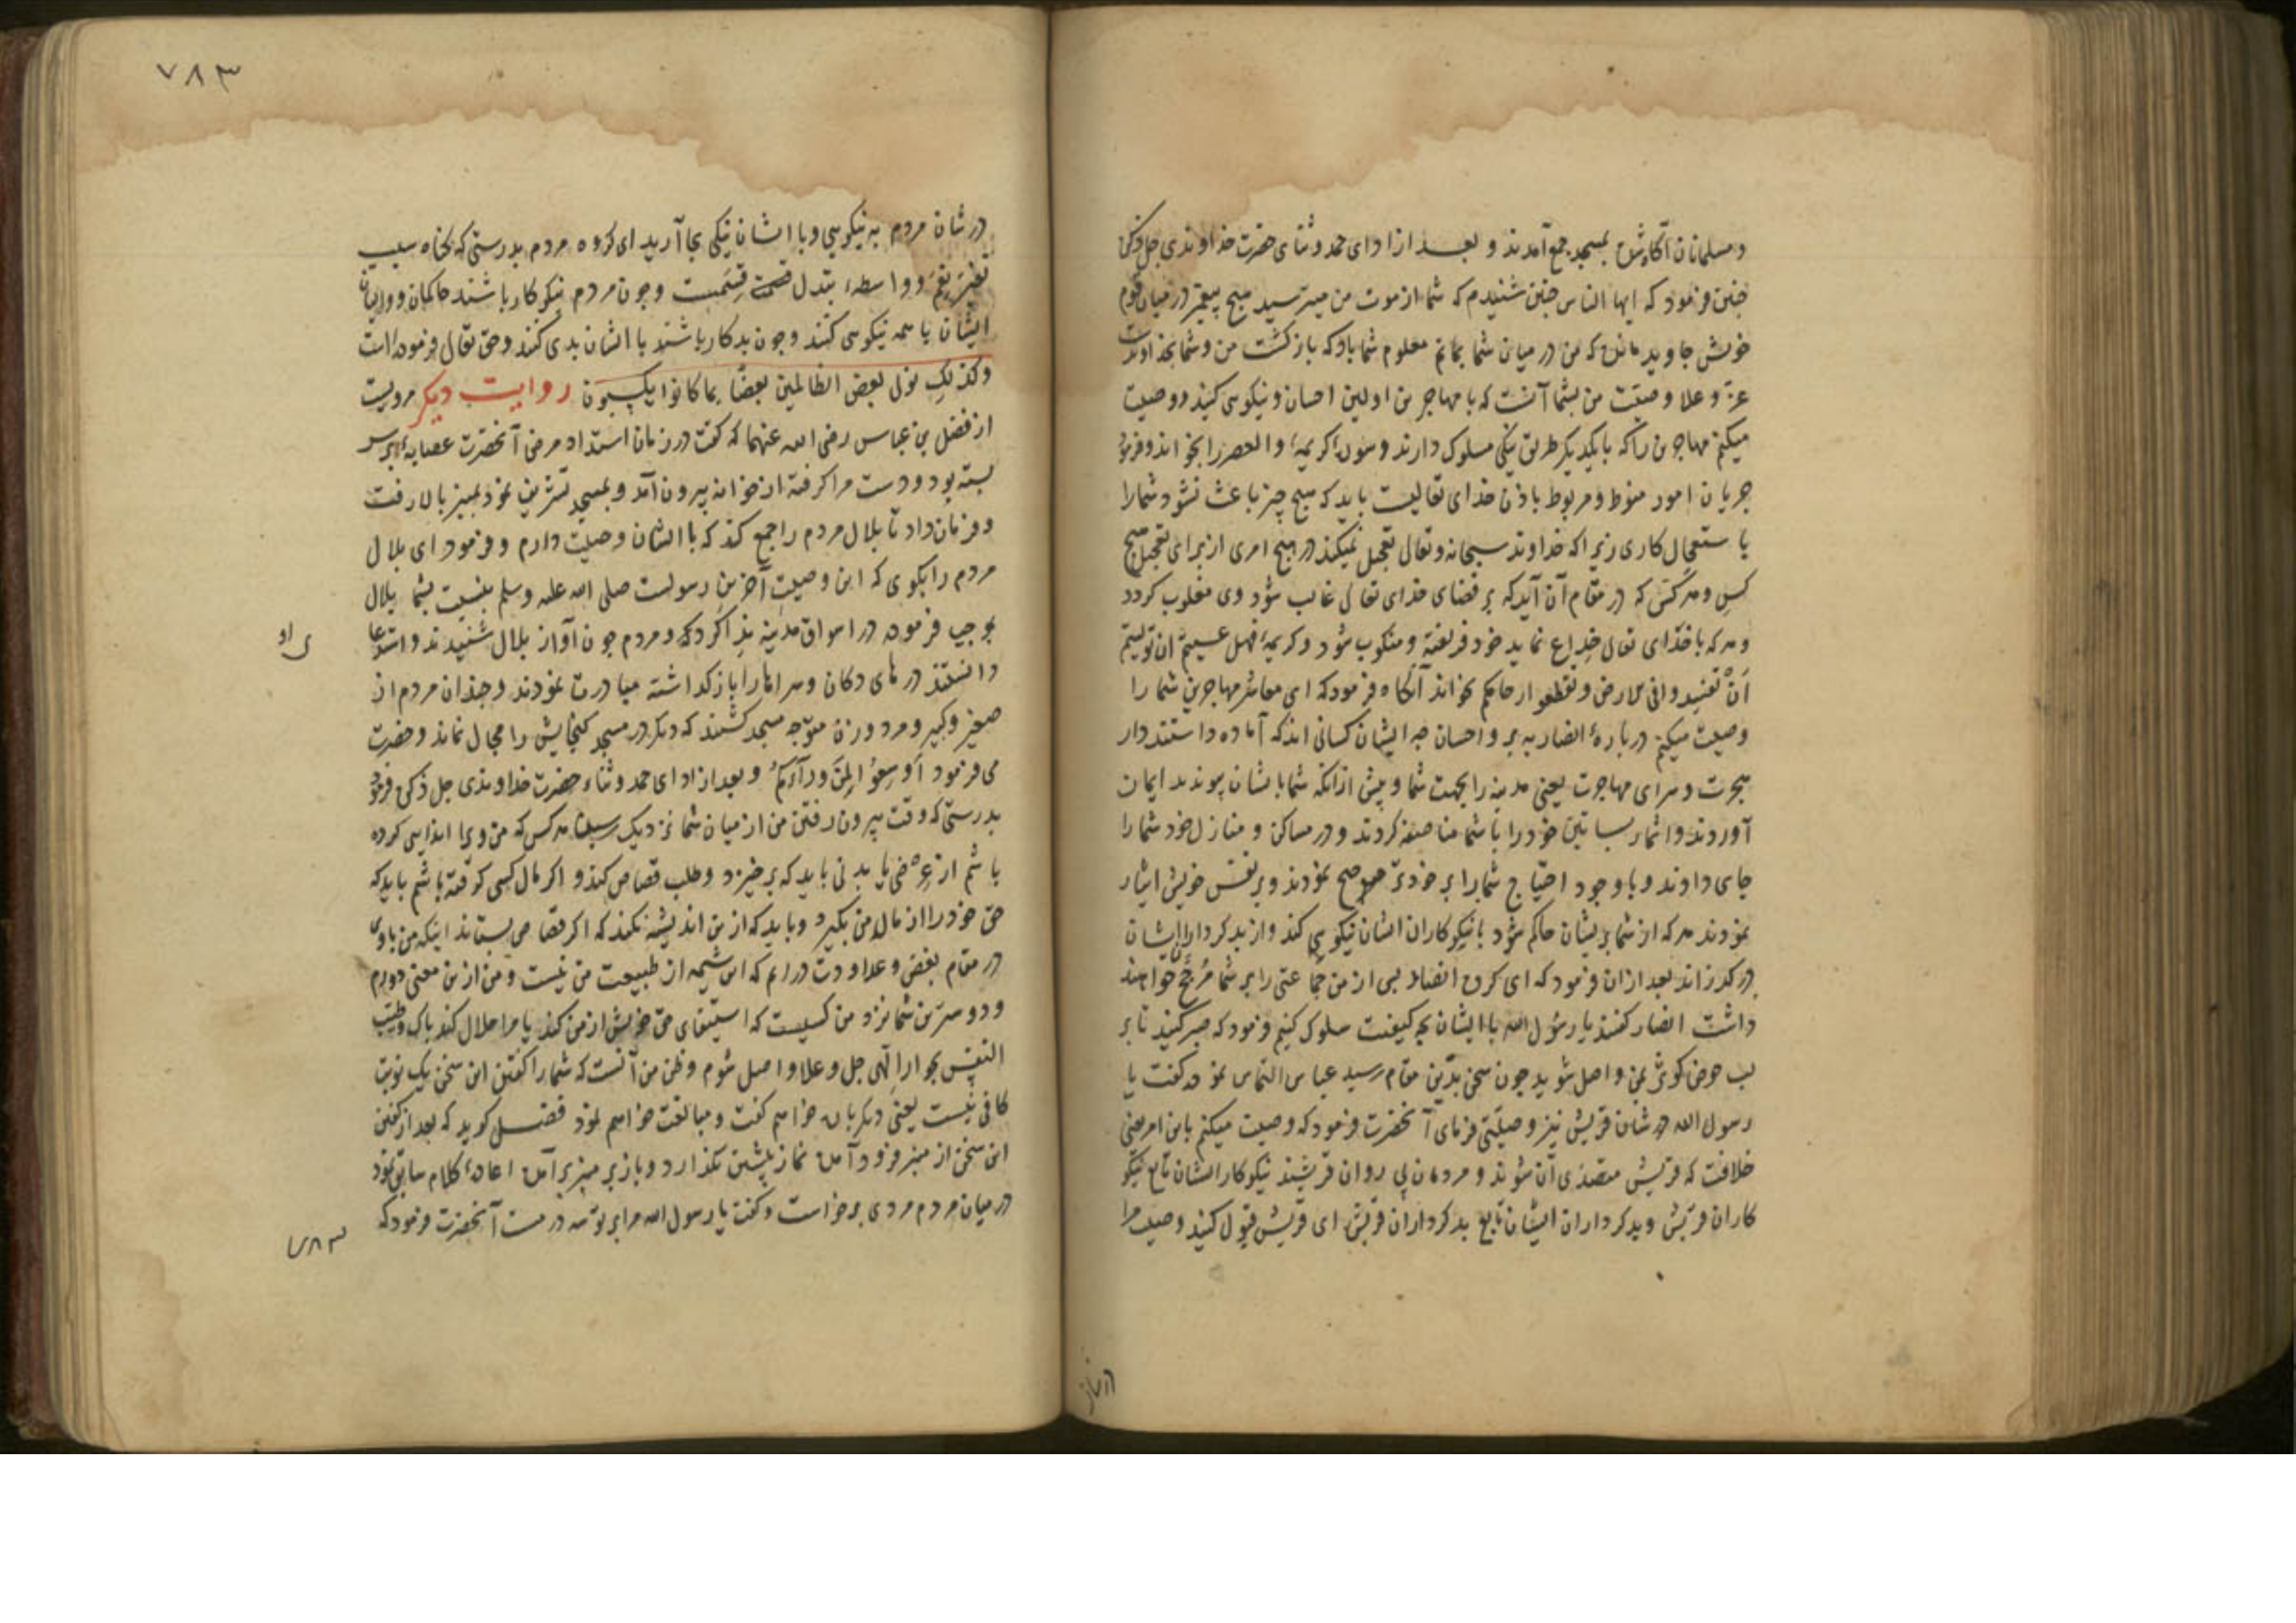 و مسلمانان آگاه شده بمسجد جمع آمدند و بعد از ادای حمد و ثنای حضرت خداوندی جل ذکره
چنین فرمود که ایها الناس چنین شنیدم که شما از موت من میترسید هیچ پیغمبر در میان قوم
خویش جاوید مانده که من در میان شما بمانم معلوم شما باد که بازگشت من و شما بخداوندست
عز و علا وصیت من بشما آنست که با مهاجرین اولین احسان و نیکویی کنید و وصیت
میکنم مهاجرین را که با یکدیگر طریق نیکی مسلوک دارند و سورهٔ کریمهٔ والعصر را بخواند و فرمود
جریان امور منوط و مربوط باذن خدای تعالیست باید که هیچ چیز باعث نشود شما را
با ستعجال کاری زیرا که خداوند سبحانه و تعالی تعجیل نمیکند در هیچ امری از برای تعجیل هیچ
کس و هر کس که در مقام آن آید که بر قضای خدای تعالی غالب شود وی مغلوب گردد
و هر که با خدای تعالی خداع نماید خود فریفته و منکوب شود و کریمهٔ فهل عسیتم ان تولیتم
أن تفسدوا فی الارض و تقطعوا ارحامکم بخواند آنگاه فرمود که ای معاشر مهاجرین شما را
وصیت میکنم در بارهٔ انصار به بر و احسان چه ایشان کسانی اند که آماده داشتند دار
هجرت و سرای مهاجرت یعنی مدینه را بجهت شما و پیش از آنکه شما بایشان پیوندید ایمان
آوردند و اثمار بساتین خود را با شما مناصفه کردند و در مساکن و منازل خود شما را
جای دادند و با وجود احتیاج شما را بر خود ترجیح نمودند و بر نفس خویش ایثار
نمودند هر که از شما بر ایشان حاکم شود با نیکوکاران ایشان نیکویی کند و از بدکرداران ایشان
در گذراند بعد از ان فرمود که ای گروه انصار پس از من جماعتی را بر شما مرجح خواهند
داشت انصار گفتند یا رسول الله با ایشان بچه کیفیت سلوک کنیم فرمود که صبر کنید تا بر
لب حوض کوثر بمن واصل شوید چون سخن بدین مقام رسید عباس التماس نمود که گفت یا
رسول الله در شان قریش نیز وصیتی فرمای آنحضرت فرمود که وصیت میکنم باین امر یعنی
خلافت که قریش متصدی آن شوند و مردمان پی روان قریشند نیکوکار ایشان تابع نیکو
کاران قریش و بدکرداران ایشان تابع بدکرداران قریش ای قریش قبول کنید وصیت مرا
در شان
۷۸۳
در شان مردم به نیکویی و با ایشان نیکی بجا آرید ای گروه مردم بدرستی که گناه سبب
تغییر نعم و واسطهٔ تبدل قسمت و چون مردم نیکوکار باشند حاکمان و والیان
ایشان با همه نیکویی کنند و چون بدکار باشند با ایشان بدی کنند و حق تعالی فرموده است
وکذلک نولی بعض الظالمین بعضا بما کانوا یکسبون روایت دیگر مرویست
از فضل بن عباس رضی الله عنهما که گفت در زمان استداد مرض آنحضرت عصابهٔ بر سر
بسته بود و دست مرا گرفته از خانه بیرون آمد و بمسجد تشریف نمود بمنبر بالا رفت
و فرمان داد تا بلال مردم را جمع کند که با ایشان وصیت دارم و فرمود ای بلال
مردم را بگوی که این وصیت آخرین رسولست صلی الله علیه وسلم بنسبت بشما بلال
بموجب فرموده در اسواق مدینه ندا کرد که و مردم چون آواز بلال شنیدند و استدعا
ی او
دانستند در های دکان و سراها را باز گذاشته مبادرت نمودند و چندان مردم از
صغیر و کبیر و مرد و زن متوجه مسجد گشتند که دیگر در مسجد گنجایش را مجال نماند و حضرت
می فرمود أوسعوا لمن ورآءکم و بعد از ادای حمد و ثناء حضرت خداوندی جل ذکره فرمود
بدرستی که وقت بیرون رفتن من از میان شما نزدیک رسید هر کس که من ویرا ایذایی کرده
باشم از عرضی یا بدنی باید که بر خیزد و طلب قصاص کند و اگر مال کسی گرفته باشم باید که
حق خود را از مال من بگیرد و باید که از من اندیشه نکند که اگر قصاص بستاند اینکه من با وی
در مقام بغض و عداوت در آیم که این شیمه از طبیعت من نیست و من از این معنی دورم
و دوسترین شما نزد من کسیست که استیفای حق خویش از من کند یا مرا حلال کند پاک و طیب
النفس بجوار الهی جل و علا واصل شوم و ظن من آنست که شما را گفتن این سخن یک نوبت
کافی نیست یعنی دیگر بار خواهم گفت و مبالغت خواهم نمود فضل گوید که بعد از گفتن
این سخن از منبر فرود آمده نماز پیشین بگذارد و باز بر منبر بر آمده اعادهٔ کلام سابق نمود
در میان مردم مردی بر خواست و گفت یا رسول الله مرا بر تو سه درمست آنحضرت فرمود که
۷۸۳